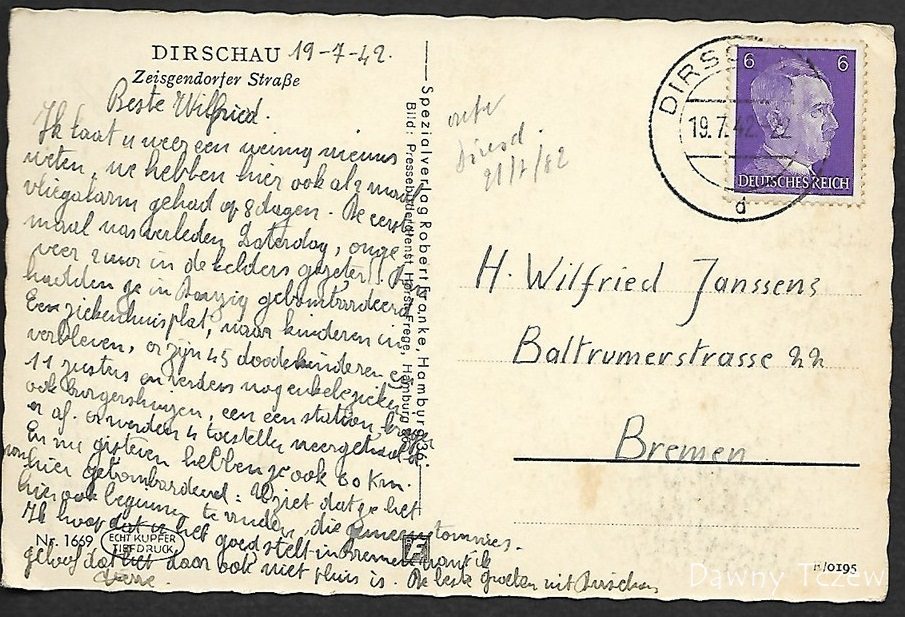 DIRSCHAU 19-7-42.
Zeisgendorfer Straße
Beste Wilfried.
Ik laat u weer een weinig nieuws
weten, we hebben hier ook al 2 maal
vliegalarm gehad op 8 dagen. De eerste
maal was verleden Zaterdag,
veer 2 uur in de kelders gezeten.
hadden ze in Danzig gebombardeerd
Een ziekenhuisplat, waar kinderen in
verbleven, er zijn 45 doode kinderen en
11 zusters en verders nog enkele zieken
ook burgershuizen, een een station,
er af. er werden 4 toestellen neergehaald
En nu gisteren hebben ze ook 60 Km.
van hier gebombardeerd: U ziet dat ze het
hier ook beginnen te vinden, die
Ik hoop dat is het goed stelt in Bremen want ik
geloof dat het daar ook niet pluis is. De beste groeten uit Dirschau
Nr. 1669
ECHT KUPFER
TIEFDRUCK
Spezialverlag Robert Franke, Hamburg 36.
Bild: Pressebilderdienst Horst Frege, Hamburg
Dirschd.
21/7/82
DIRSC
19.7.42. 22
d
6 6
DEUTSCHES REICH
H. Wilfried Janssens
Baltrumerstrasse 22
Bremen
n/0195
Dawny Tczew